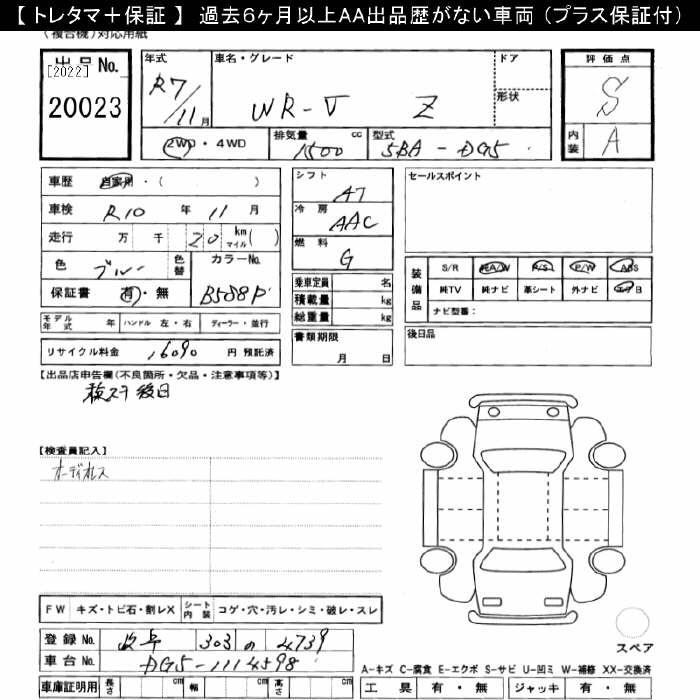 【 トレタマ＋保証 】 過去６ヶ月以上ＡＡ出品歴がない車両（プラス保証付）
（複合機）対応用紙
出品No.
[2022]
20023
年式
R7/11月
車名・グレード
WR-V Z
ドア
形状
評価点
S
内装 A
2WD・4WD
排気量 1500 cc
型式 5BA-DG5
車歴 自家用・（ ）
車検 R10年 11月
走行 万 千 20 km マイル( )
色 ブルー 色替
カラーNo. B588P
保証書 有・無
シフト AT
冷房 AAC
燃料 G
乗車定員 名
積載量 kg
総重量 kg
セールスポイント
装備品
S/R 純A/W P/S P/W ABS
純TV 純ナビ 革シート 外ナビ エアB
ナビ型番：
モデル年式 年 ハンドル 左・右 ディーラー・並行
リサイクル料金 16090 円 預託済
書類期限
月 日
後日品
【出品店申告欄(不良箇所・欠品・注意事項等)】
検ステ後日
【検査員記入】
オーディオレス
FW キズ・トビ石・割レX シート内装 コゲ・穴・汚レ・シミ・破レ・スレ
登録No. 303 の 4739
車台No. DG5-1114598
スペア
A-キズ C-腐食 E-エクボ S-サビ U-凹ミ W-補修 XX-交換済
車庫証明用 長さ cm 幅 cm 高さ cm
工具 有・無 ジャッキ 有・無